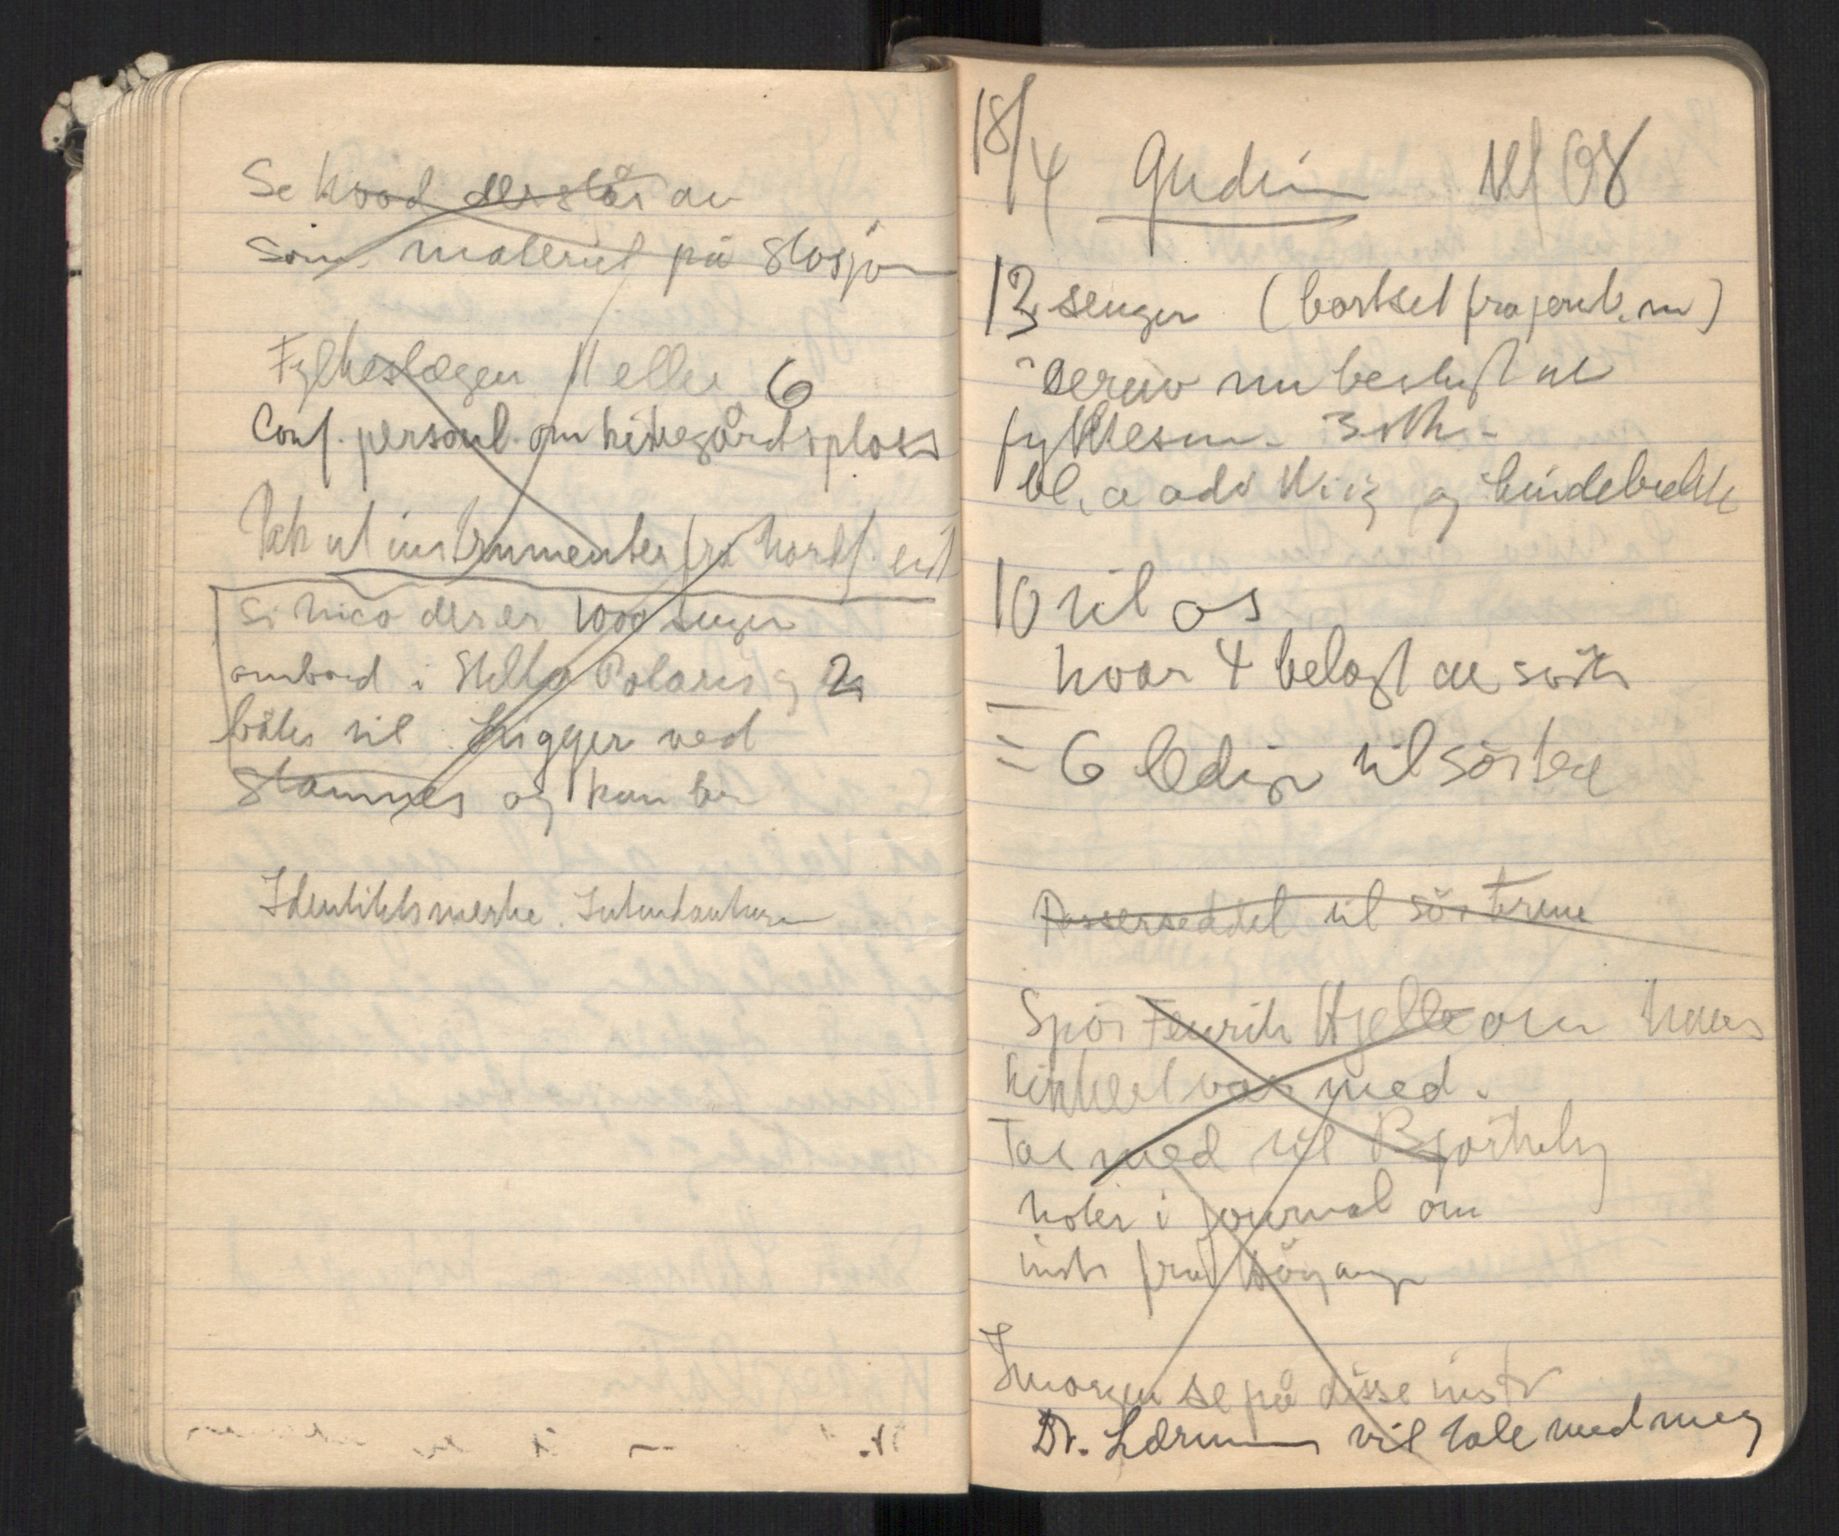 Se hvad der står av
San. materiel på stasjon
Fylkeslægen Heller 6
Conf. personl. om kirkegårdsplass
Tak ut instrumenter fra
Si hico der er 1000 senger
ombord i Stella Polaris og 2
båter til. Ligger ved
Stamnes og kan
Identitetsmerke. Intendanturen
18/4 Gudim tlf 08
13 senger (bortset fra
Derav nu beslagt av
fylkesm.
bl. a adv Wiig og
10 til os
hvor 4 belagt av søstr
= 6 ledige til søstre
Passerseddel til søstrene
Spør Fenrik Hjelle om hans
kikkert var med.
Ta med til Bjørkely
noter i journal om
instr fra
Imorgen se på disse instr
Dr. vil tale med meg